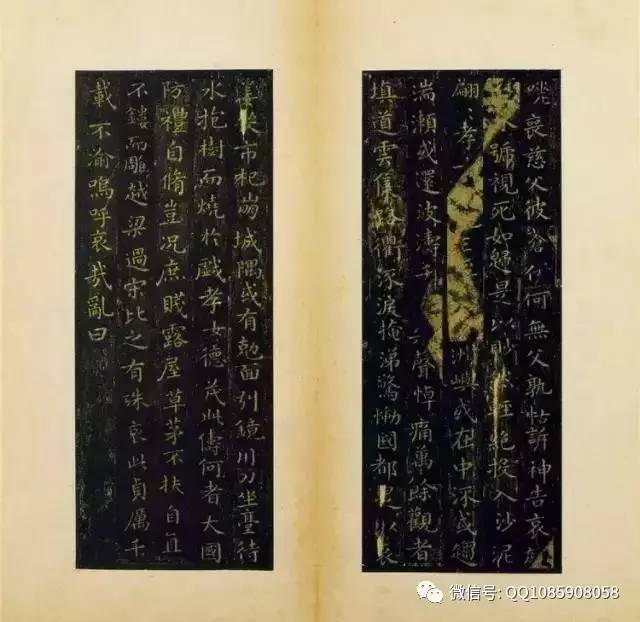 咷喪慈父彼蒼伊何無父孰怙訴神告哀
號視死如歸是以眇然輕絕投入沙泥
翩〻孝 洲嶼或在中流或趨
湍瀨或還波濤千 聲悼痛萬餘觀者
填道雲集路衢流淚掩涕驚慟國都是以哀
哭市杞崩城隅或有剋面引鏡 刀坐臺待
水抱樹而燒於戲孝女德茂此儔何者大國
防禮自脩豈況庶賤露屋草茅不扶自直
不鏤而雕越梁過宋比之有殊哀此貞厲千
載不渝嗚呼哀哉亂曰
微信号: QQ1085908058